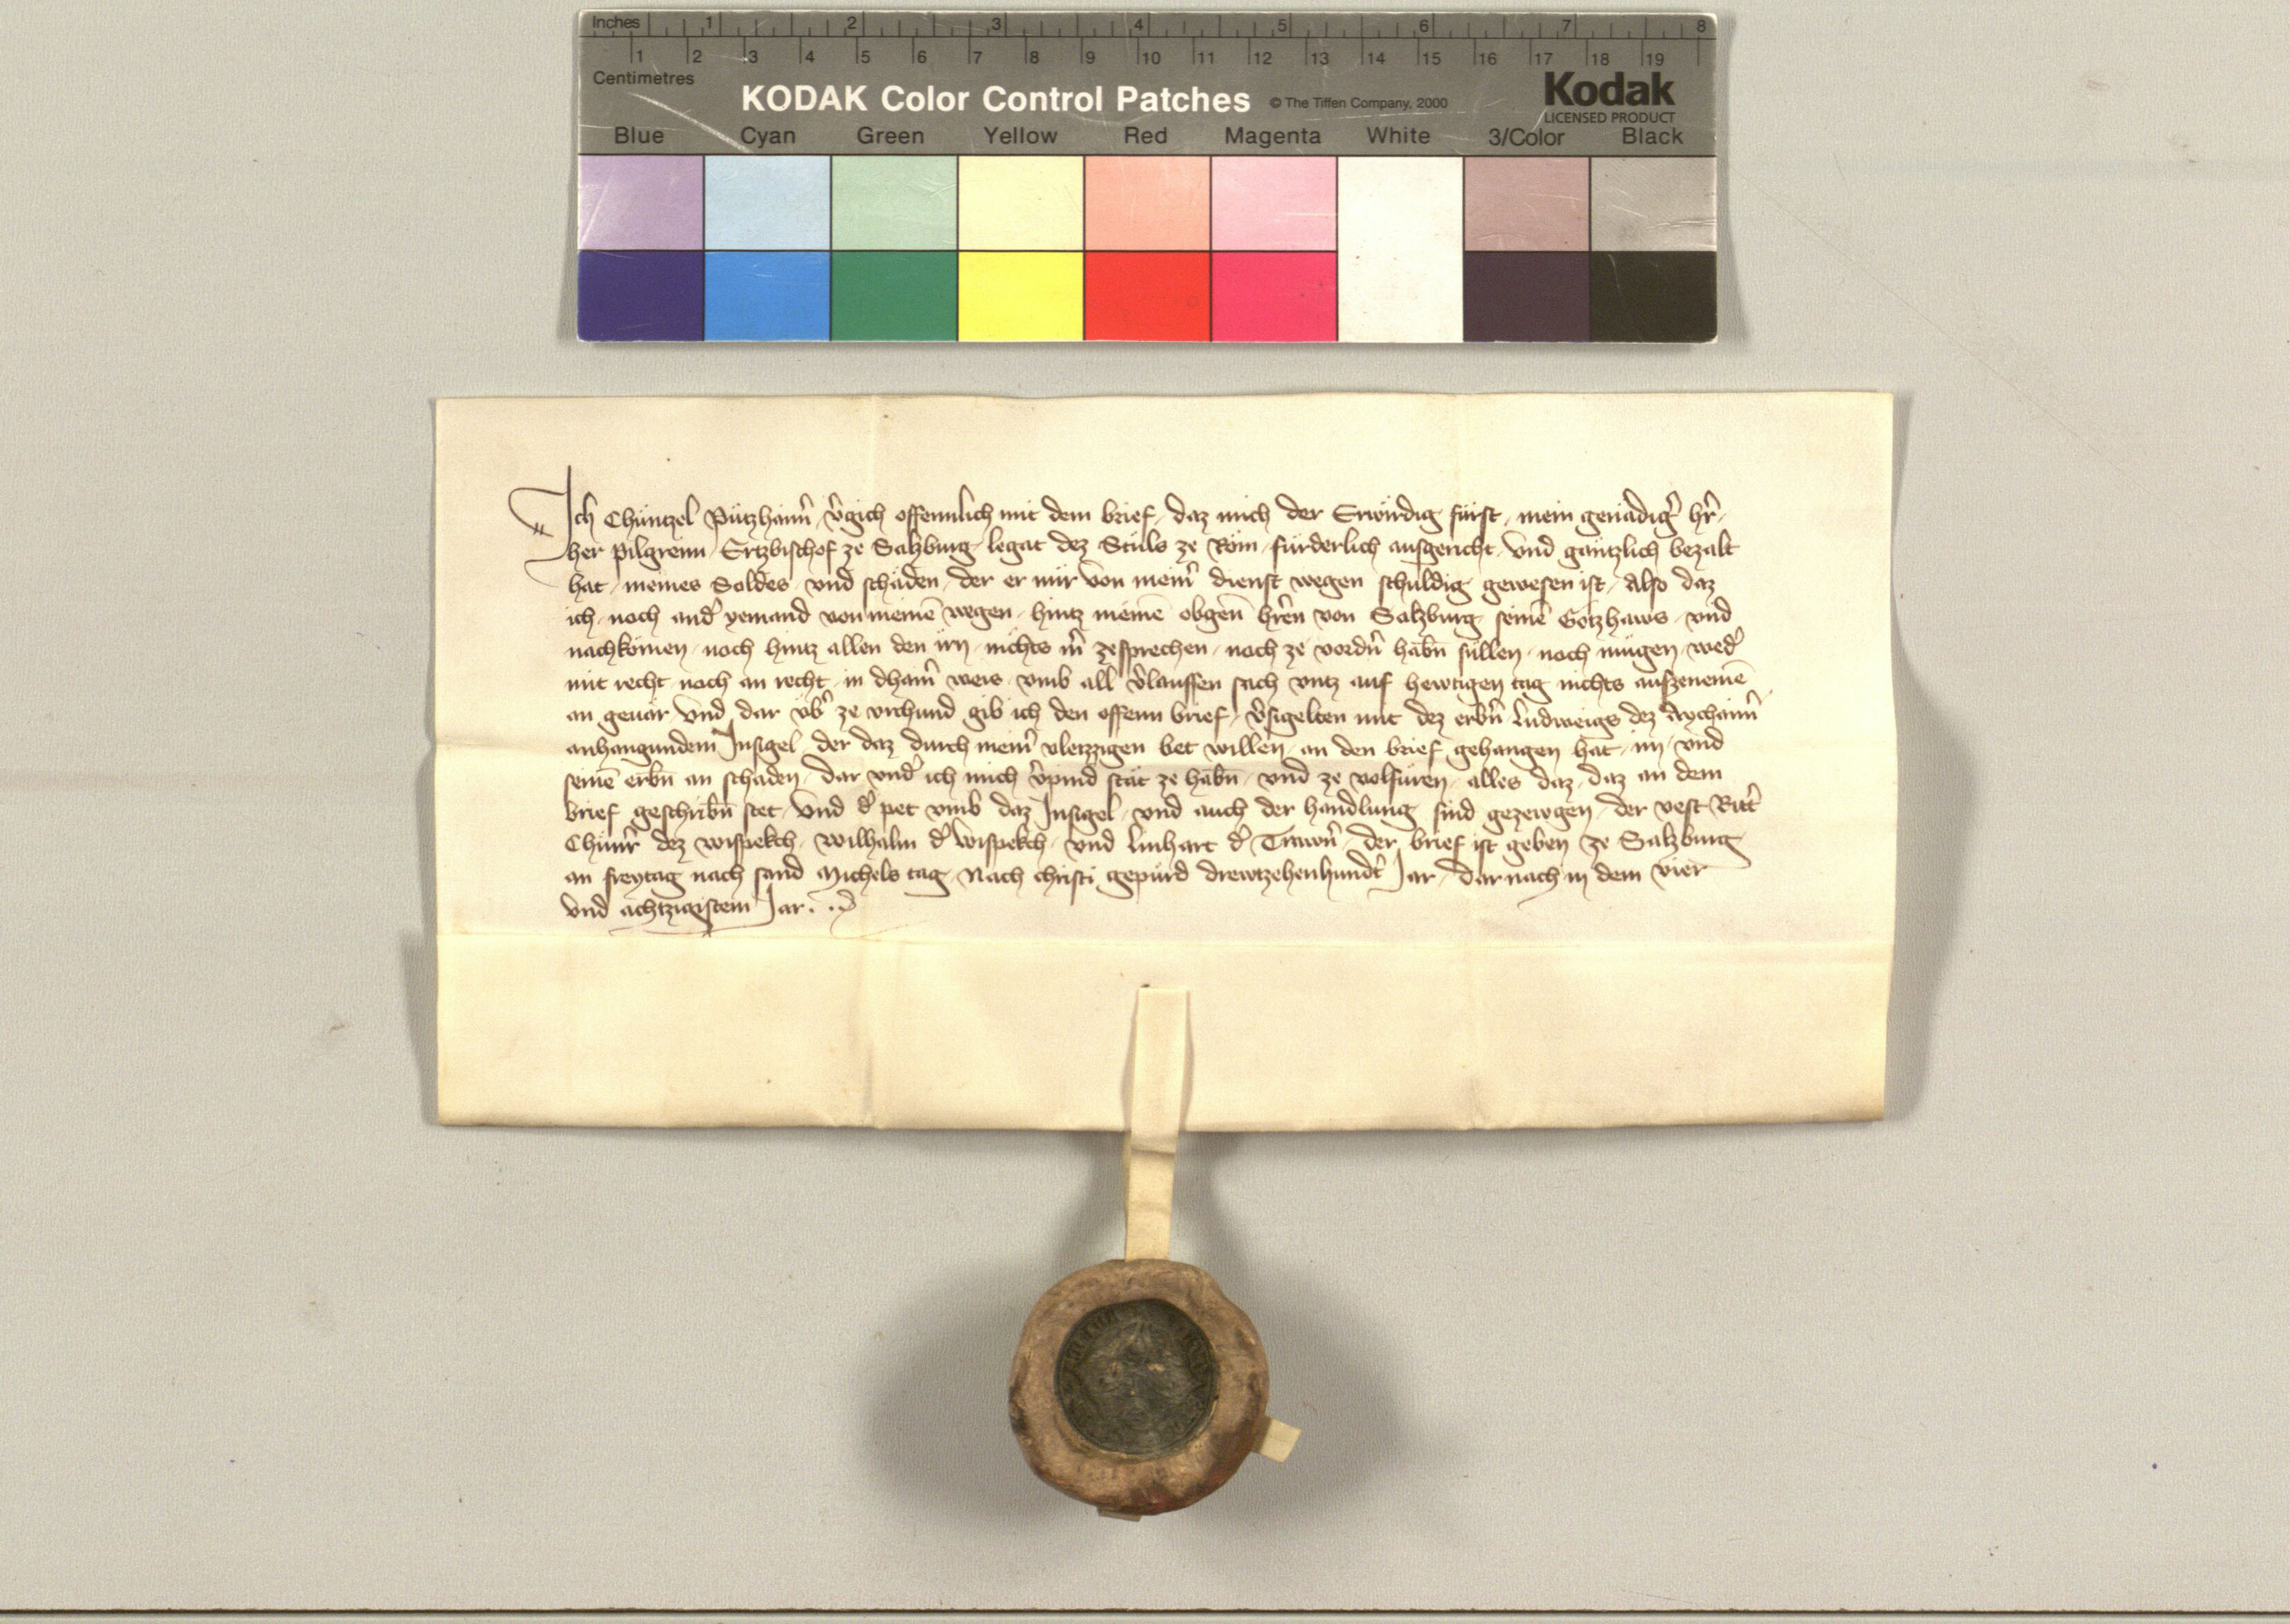 Inches 1 2 3 4 5 6 7 8
1 2 3 4 5 6 7 8 9 10 11 12 13 14 15 16 17 18 19
Centimetres
KODAK Color Control Patches © The Tiffen Company, 2000 Kodak
LICENSED PRODUCT
Blue Cyan Green Yellow Red Magenta White 3/Color Black
Ich Chüntzel Pützhaim̄ v̉gich offennlich mit dem brief, daz mich der Erwirdig fürst, mein genädig̉ hr̉,
her Pilgreim Ertzbischof ze Salzburg legat dez Stüls ze Rom, fürderlich ausgericht, vnd gäntzlich bezalt
hat, meines Soldes, vnd schäden, der er mir von meim̉ dienst wegen schuldig gewesen ist, Also daz
ich, noch and̉ yemand von meinē wegen, hintz meinē obgen̄ hr̉en von Salzburg, seinē Gotzhaws, vnd
nachkömen, noch hintz allen den irn, nichts m̉ zesprechen, noch ze vordn̉ habn̄ süllen, noch mügen, wed̉
mit recht noch an recht, in dhaim̉ weis, vmb all v̉lauffen sach vntz auf hewtigen tag nichts aufzenemē
an geuär Vnd dar üb̉ ze vrchund gib ich den offenn brief, v̉sigelten mit dez erbn̉ Ludweigs dez Aychaim̉
anhangundem Insigel, der daz durch meim̉ vleizzigen bet willen, an den brief gehangen hat, im, vnd
seinē erbn̄ an schaden, dar vnd̉ ich mich v̉pind stät ze habn̄, vnd ze volfüren, alles daz, daz an dem
brief geschribn̄ stet, Vnd d̉ pet vmb daz Insigel, vnd auch der handlung sind gezewgen, der vest Ritt̉
Chünr̉ dez wispekch, Wilhalm d̉ Wispekch, vnd Linhart d̉ Trawn̉, der brief ist geben ze Salzburg
an freytag nach sand Michels tag, Nach christi gepürd drewtzehenhundt̉ Jar, dar nach in dem vier
vnd achtzigistem Jar.